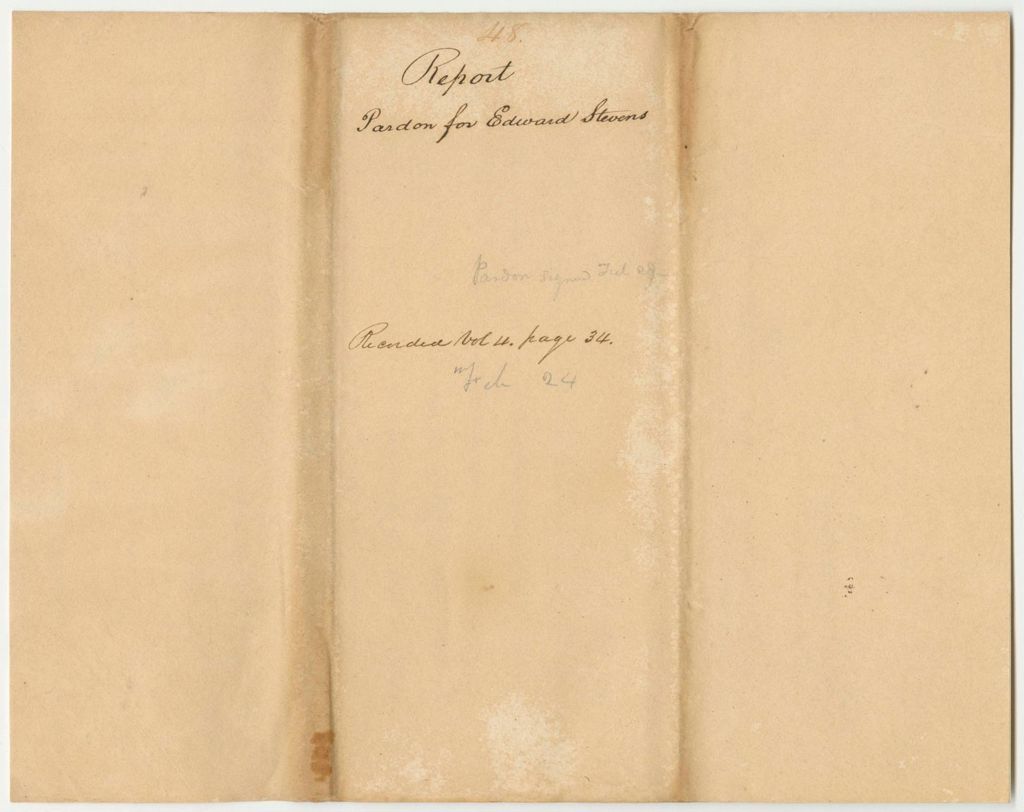 48.
Report
Pardon for Edward Stevens
Pardon signed
Recorded Vol 4. page 34.
24